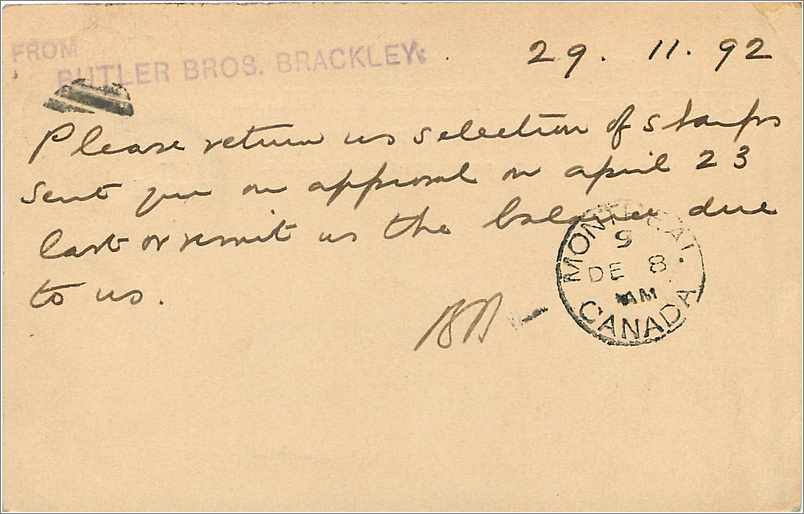 FROM
BUTLER BROS. BRACKLEY.
29. 11. 92
Please return us selection of stamps
sent you on approval on april 23
last or remit us the balance due
to us.
BB
MONTREAL
9
DE 8
AM
CANADA